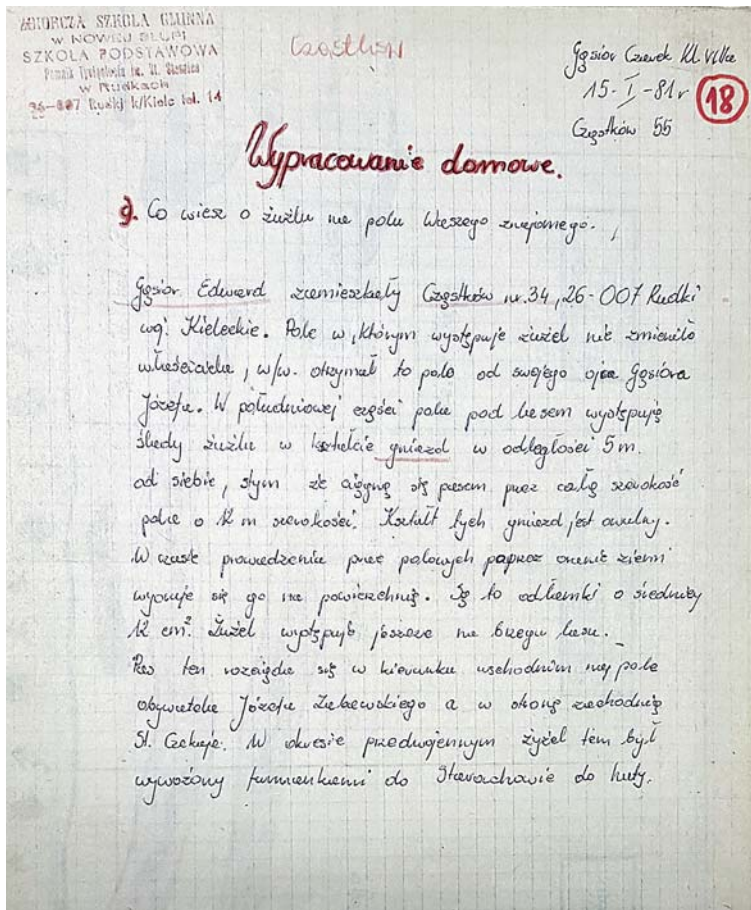 ZBIORCZA SZKOŁA GMINNA
W NOWEJ SŁUPI
SZKOŁA PODSTAWOWA
w Rudkach
26-007 Rudki k/Kielc tel. 14
Cząstków
Gąsior Czesek Kl. VIIa
15-I-81r
18
Cząstków 55
Wypracowanie domowe.
9. Co wiesz o żużlu na polu Waszego znajomego.
Gąsior Edward zamieszkały Cząstków nr. 34, 26-007 Rudki
woj. Kieleckie. Pole w którym występuje żużel nie zmieniło
właściciela, w/w. otrzymał to pole od swojego ojca Gąsiora
Józefa. W południowej części pola pod lasem występują
ślady żużlu w kształcie gniazd w odległości 5 m.
od siebie, stym że ciągną się pasem przez całą szerokość
pola o 12 m szerokości. Kształt tych gniazd jest owalny.
W czasie prowadzenia prac polowych poprzez oranie ziemi
wyoruje się go na powierzchnię. Są to odłamki o średnicy
12 cm². Żużel występuje jeszcze na brzegu lasu.
Pas ten rozciąga się w kierunku wschodnim na pole
obywatela Józefa Zalewskiego a w stronę zachodnią
St. Czekaja. W okresie przedwojennym żyżel tem był
wywożony furmankami do Starachowic do huty.